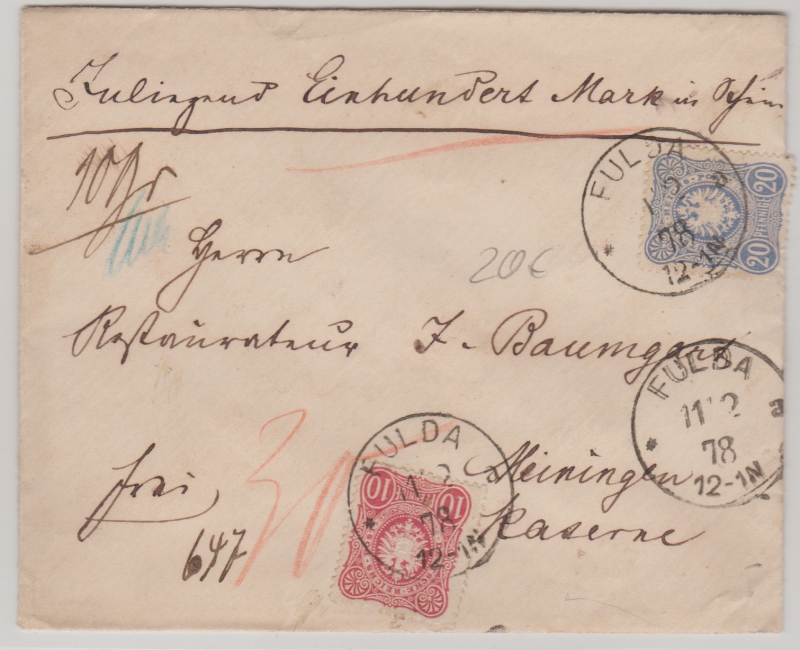 Inliegend Einhundert Mark in Schein
10 Gr
Herrn
Restaurateur J. Baumgard
Meiningen
Kaserne
frei
647
30
20€
FULDA
11 2
78
12-1N
a
20 PFENNIGE 20
FULDA
11 2
78
12-1N
a
FULDA
11 2
78
12-1N
a
10 10